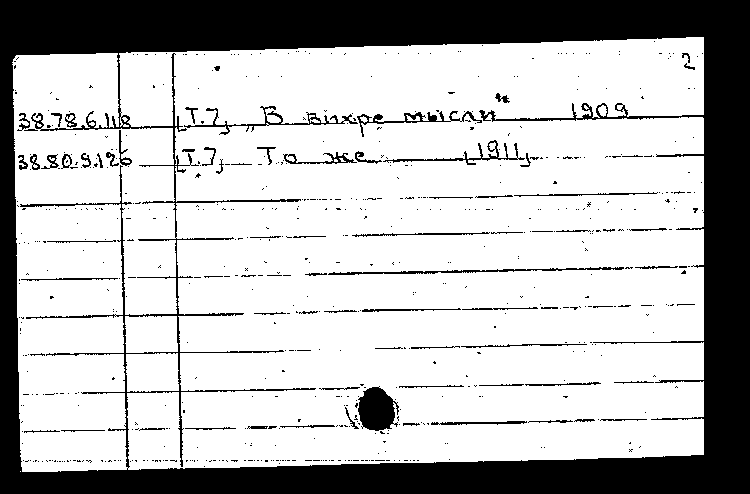 2
38.78.6.118 [Т.7] „В вихре мысли“ 1909
38.80.9.126 [Т.7] То же [1911]